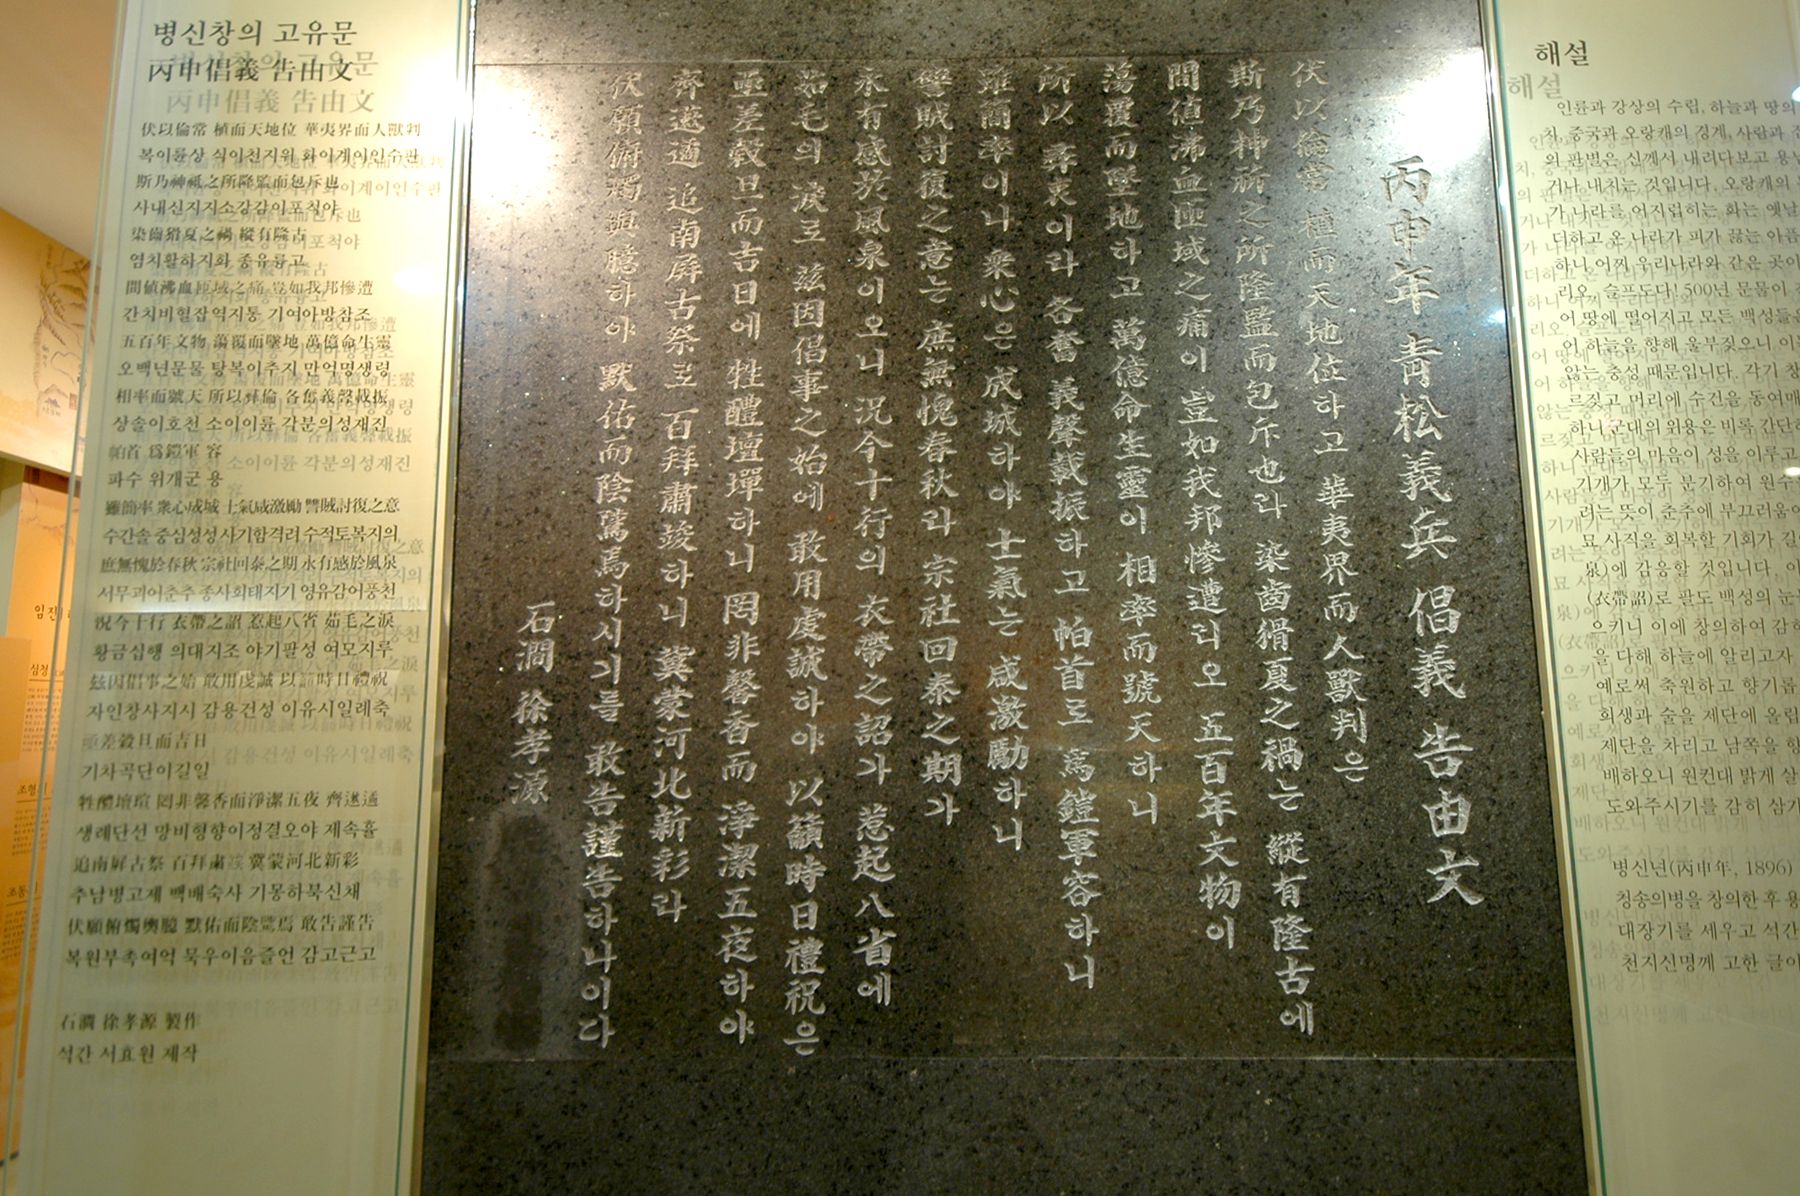 병신창의 고유문
丙申倡義 告由文
伏以倫常 植而天地位 華夷界而人獸判
복이륜상 식이천지위 화이계이인수판
斯乃神祗之所降監而包斥也
사내신지지소강감이포척야
染齒猾夏之禍 縱有隆古
염치활하지화 종유륭고
間値沸血匝域之痛 豈如我邦慘遭
간치비혈잡역지통 기여아방참조
五百年文物 蕩覆而墜地 萬億命生靈
오백년문물 탕복이추지 만억명생령
相率而號天 所以彛倫 各奮義聲載振
상솔이호천 소이이륜 각분의성재진
帕首 爲鎧軍 容
파수 위개군 용
雖簡率 衆心成城 士氣咸激勵 讐賊討復之意
수간솔 중심성성 사기함격려 수적토복지의
庶無愧於春秋 宗社回泰之期 永有感於風泉
서무괴어춘추 종사회태지기 영유감어풍천
況今十行 衣帶之詔 惹起八省 茹毛之淚
황금십행 의대지조 야기팔성 여모지루
玆因倡事之始 敢用虔誠 以籲時日禮祝
자인창사지시 감용건성 이유시일례축
亟差穀旦而吉日
기차곡단이길일
牲醴壇瑄 罔非馨香而淨潔五夜 齊遬遹
생례단선 망비형향이정결오야 제속휼
追南屛古祭 百拜肅竢 冀蒙河北新彩
추남병고제 백배숙사 기몽하북신채
伏願俯燭輿臆 默佑而陰騭焉 敢告謹告
복원부촉여억 묵우이음즐언 감고근고
石澗 徐孝源 製作
석간 서효원 제작
丙申年 靑松義兵 倡義 告由文
伏以倫常 植而天地位하고 華夷界而人獸判은
斯乃神祈之所隆監而包斥也라 染齒猾夏之禍는 縱有隆古에
間値沸血匝域之痛이 豈如我邦慘遭리오 五百年文物이
蕩覆而墜地하고 萬億命生靈이 相率而號天하니
所以 彛衷이라 各奮 義聲載振하고 帕首로 爲鎧軍容하니
雖簡率이니 衆心은 成城하야 士氣는 咸激勵하니
讐賊討復之意는 庶無愧春秋라 宗社回泰之期가
永有感於風泉이오니 況今十行의 衣帶之詔가 惹起八省에
茹毛의 淚로 玆因倡事之始에 敢用虔誠하야 以籲時日禮祝은
亟差穀旦而吉日에 牲醴壇墠하니 罔非馨香而 淨潔五夜하야
齊遬遹 追南屛古祭로 百拜肅竣하니 冀蒙河北新彩라
伏願俯燭輿臆하야 默佑而陰騭焉하시기를 敢告謹告하나이다
石澗 徐孝源
해설
인륜과 강상의 수립, 하늘과 땅의
차, 중국과 오랑캐의 경계, 사람과 짐
의 판별은 신께서 내려다보고 용납
거나 내치는 것입니다. 오랑캐의
가 나라를 어지럽히는 화는 옛날
더하고 온 나라가 피가 끓는 아픔
하니 어찌 우리나라와 같은 곳이
리오. 슬프도다! 500년 문물이
어 땅에 떨어지고 모든 백성들은
어 하늘을 향해 울부짖으니 이는
않는 충성 때문입니다. 각기 창
르짖고 머리에 수건을 동여매
하니 군대의 위용은 비록 간단하
사람들의 마음이 성을 이루고
기개가 모두 분기하여 원수
려는 뜻이 춘추에 부끄러움이
묘 사직을 회복할 기회가 길
泉)에 감응할 것입니다. 이
(衣帶詔)로 팔도 백성의 눈물
으키니 이에 창의하여 감히
을 다해 하늘에 알리고자
예로써 축원하고 향기롭
희생과 술을 제단에 올립
제단을 차리고 남쪽을 향
배하오니 원컨대 밝게 살
도와주시기를 감히 삼가
병신년(丙申年, 1896)
청송의병을 창의한 후 용
대장기를 세우고 석간
천지신명께 고한 글이